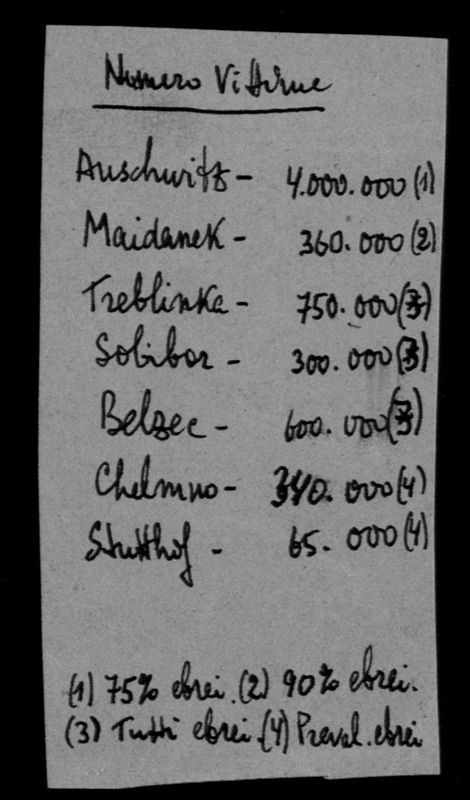 Numero Vittime
Auschwitz - 4.000.000 (1)
Maidanek - 360.000 (2)
Treblinka - 750.000 (3)
Sobibor - 300.000 (3)
Belzec - 600.000 (3)
Chelmno - 340.000 (4)
Stutthof - 65.000 (4)
(1) 75% ebrei. (2) 90% ebrei.
(3) Tutti ebrei. (4) Preval. ebrei